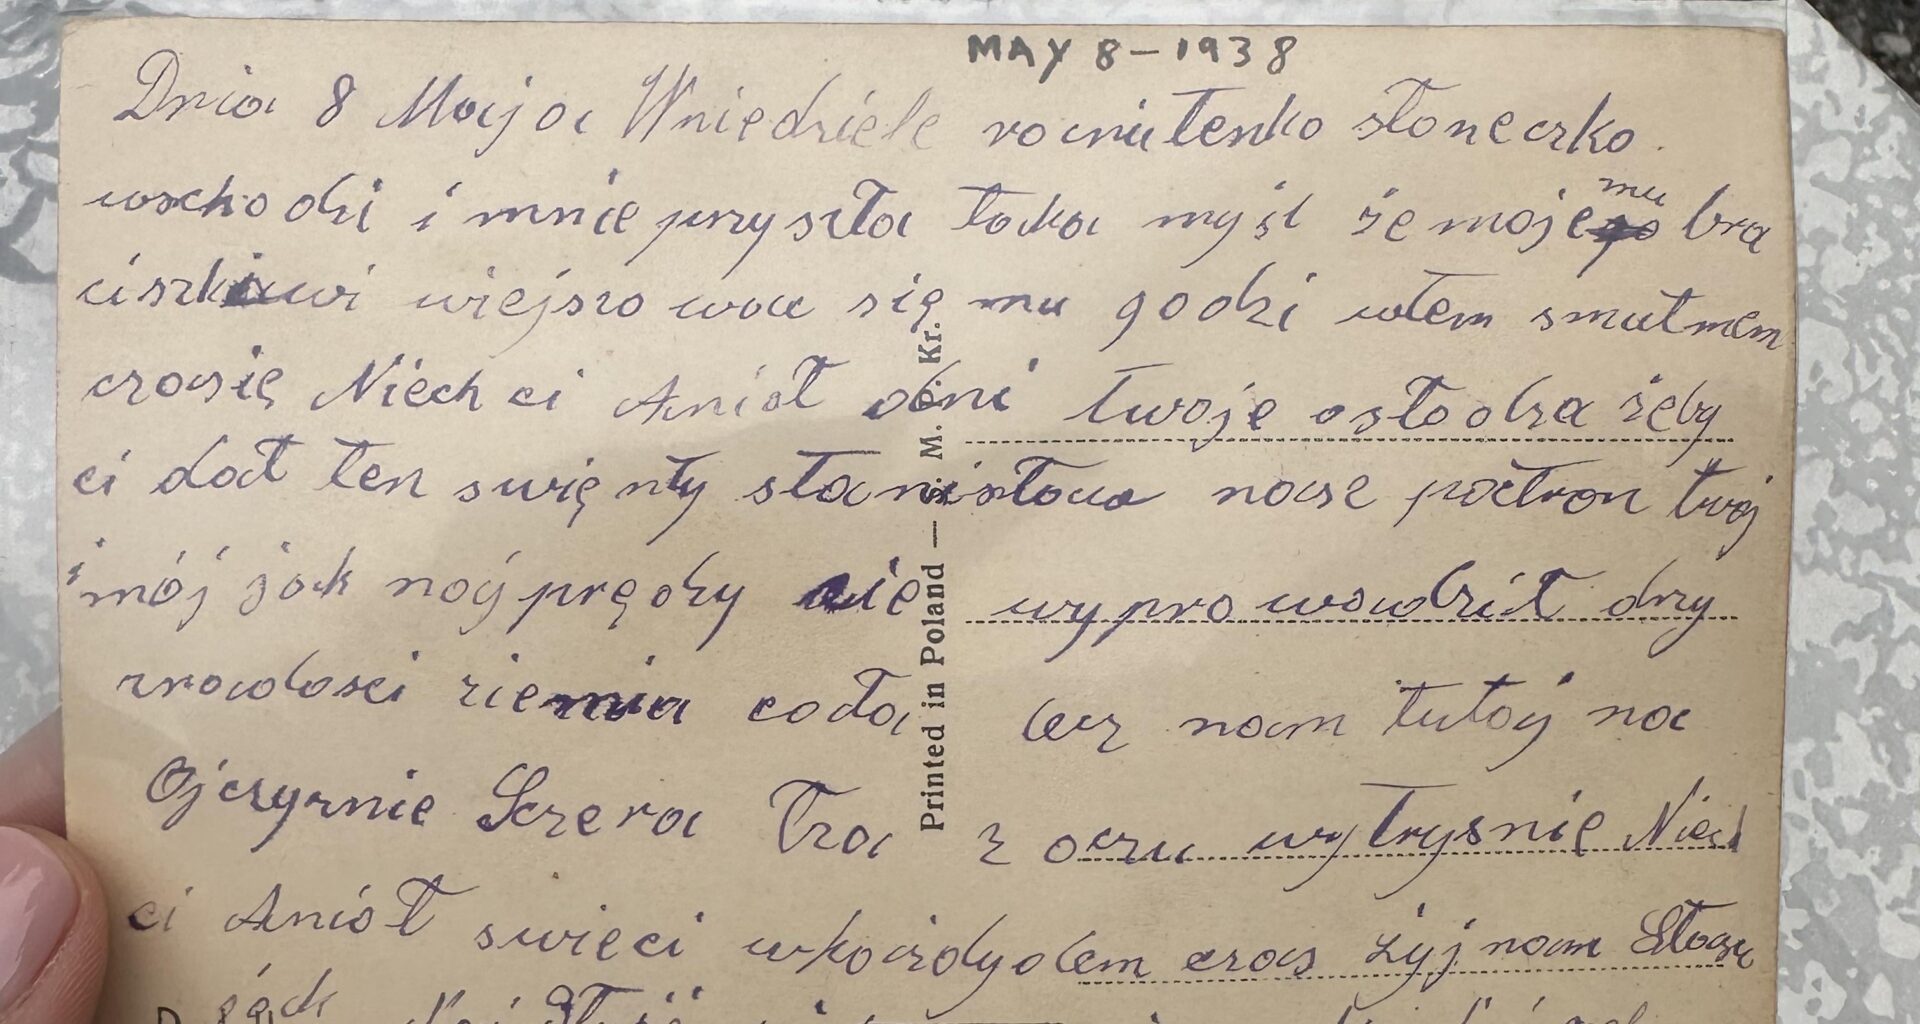 MAY 8-1938
Dnia 8 Maja Wniedziele racniutenko słoneczko
wschodzi i mnie przyszła taka myśl że mojemu bra
ciszkiwi wiejszować się mu godzi wtem smutmem
czasię Niech ci Anioł dni twoje osłodza żeby
ci dał ten swięnty stanisław nasz patron twój
i mój jak najprędzy cie wyprowadził dzy
zradosci ziemia cała bez nam tutaj na
Ojczyznie Szczera Łza z oczu wytrysnie Niech
ci Anioł swieci wkażdydem czas żyj nam Stasu
Printed in Poland — S. M. Kr.